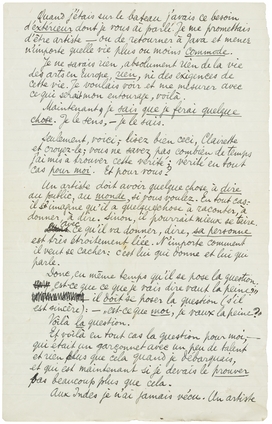 Quand j'étais sur le bateau j'avais ce besoin
d'extérieur dont je vous ai parlé. Je me promettais
d'être artiste — ou de retourner à Java et mener
n'importe quelle vie plus ou moins commode.
Je ne savais rien, absolument rien de la vie
des arts en Europe, rien, ni des exigences de
cette vie. Je voulais voir et me mesurer avec
ce qui serait mon entourage, voilà.
Maintenant je sais que je ferai quelque
chose. Je le sens, — je le sais.
Seulement, voici; lisez bien ceci, Clavette
et croyez-le; vous ne savez pas combien de temps
j'ai mis à trouver cette vérité; vérité en tout
cas pour moi. Et pour vous?
Un artiste doit avoir quelque chose à dire
au public, au monde, si vous voulez. En tout cas:
il s'imagine qu'il a quelque chose à raconter, à
donner, à dire. Sinon, il pourrait mieux se taire.
Ce qu'il va donner, dire, sa personne
est très étroitement liée. N'importe comment
il veut se cacher: c'est lui qui donne et lui qui
parle.
Donc, en même temps qu'il se pose la question:
est-ce que ce que je vais dire vaut la peine?"
il doit se poser la question (s'il
est sincère): — est-ce que moi, je vaux la peine?"
Voilà la question.
Et voilà en tout cas la question pour moi, —
qui était un garçonnet avec un peu de talent
et rien plus que cela quand je débarquais,
et qui est maintenant si je devais le prouver
pas beaucoup plus que cela.
Aux Indes je n'ai jamais vécu. Un artiste